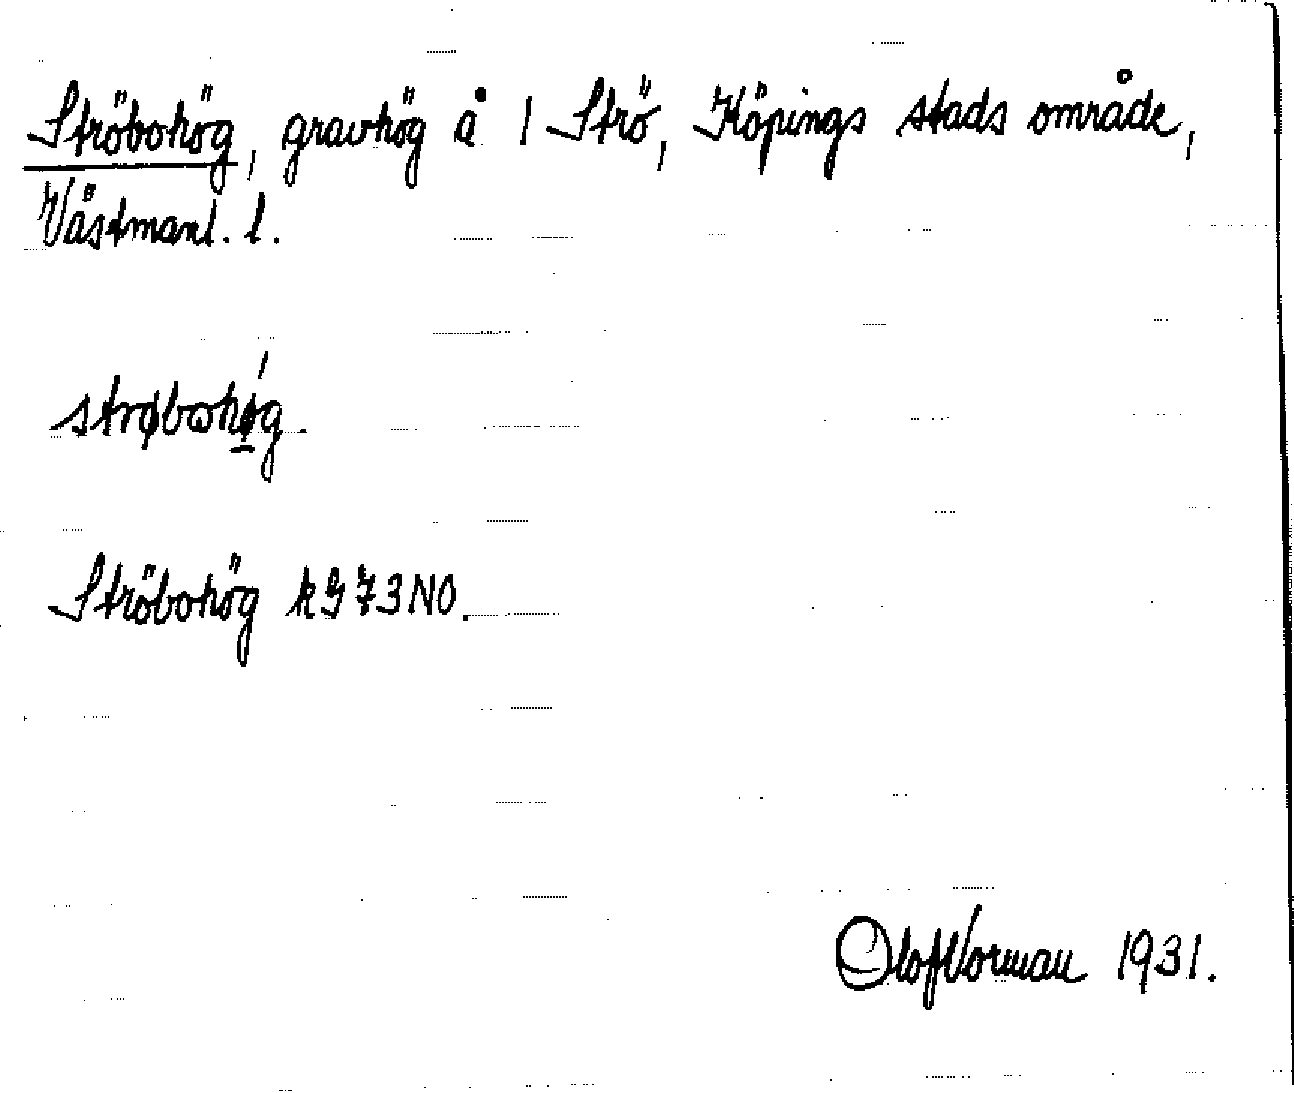 Ströbohög, gravhög å 1 Strö, Köpings stads område,
Västmanl. l.
strøbωhǿg.
Ströbohög k973NO.
Olof Norman 1931.